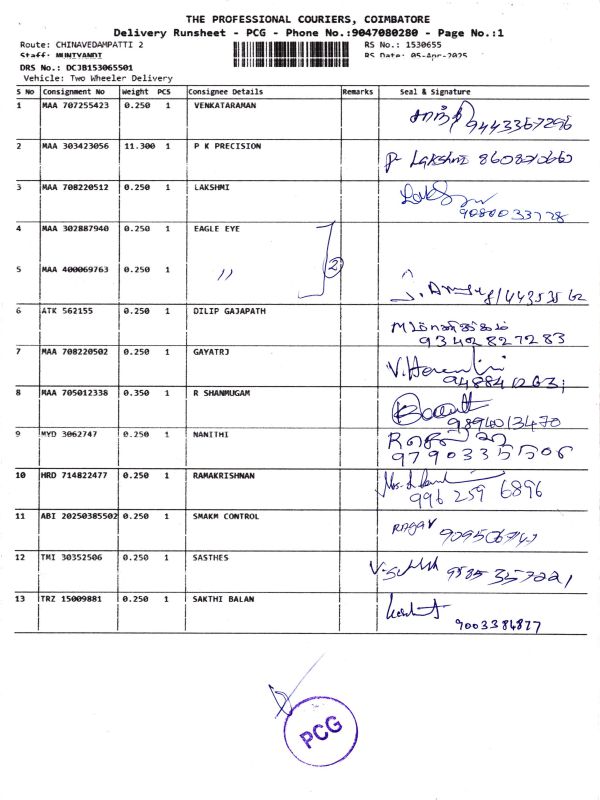 THE PROFESSIONAL COURIERS, COIMBATORE
Delivery Runsheet - PCG - Phone No.:9047080280 - Page No.:1
Route: CHINAVEDAMPATTI 2 RS No.: 1530655
Staff: MUNIYANDI RS Date: 05-Apr-2025
DRS No.: DCJB153065501
Vehicle: Two Wheeler Delivery
S No Consignment No Weight PCS Consignee Details Remarks Seal & Signature
1 MAA 707255423 0.250 1 VENKATARAMAN 9443367296
2 MAA 303423056 11.300 1 P K PRECISION P Lakshmi
3 MAA 708220512 0.250 1 LAKSHMI 9080033778
4 MAA 302887940 0.250 1 EAGLE EYE
2
5 MAA 400069763 0.250 1 "
6 ATK 562155 0.250 1 DILIP GAJAPATH
93428 27283
7 MAA 708220502 0.250 1 GAYATRJ
8 MAA 705012338 0.350 1 R SHANMUGAM
9894013470
9 MYD 3062747 0.250 1 NANITHI
10 HRD 714822477 0.250 1 RAMAKRISHNAN
996 259 6896
11 ABI 20250385502 0.250 1 SMAKM CONTROL
12 TMI 30352506 0.250 1 SASTHES 9585357221
13 TRZ 15009881 0.250 1 SAKTHI BALAN
9003384877
PCG